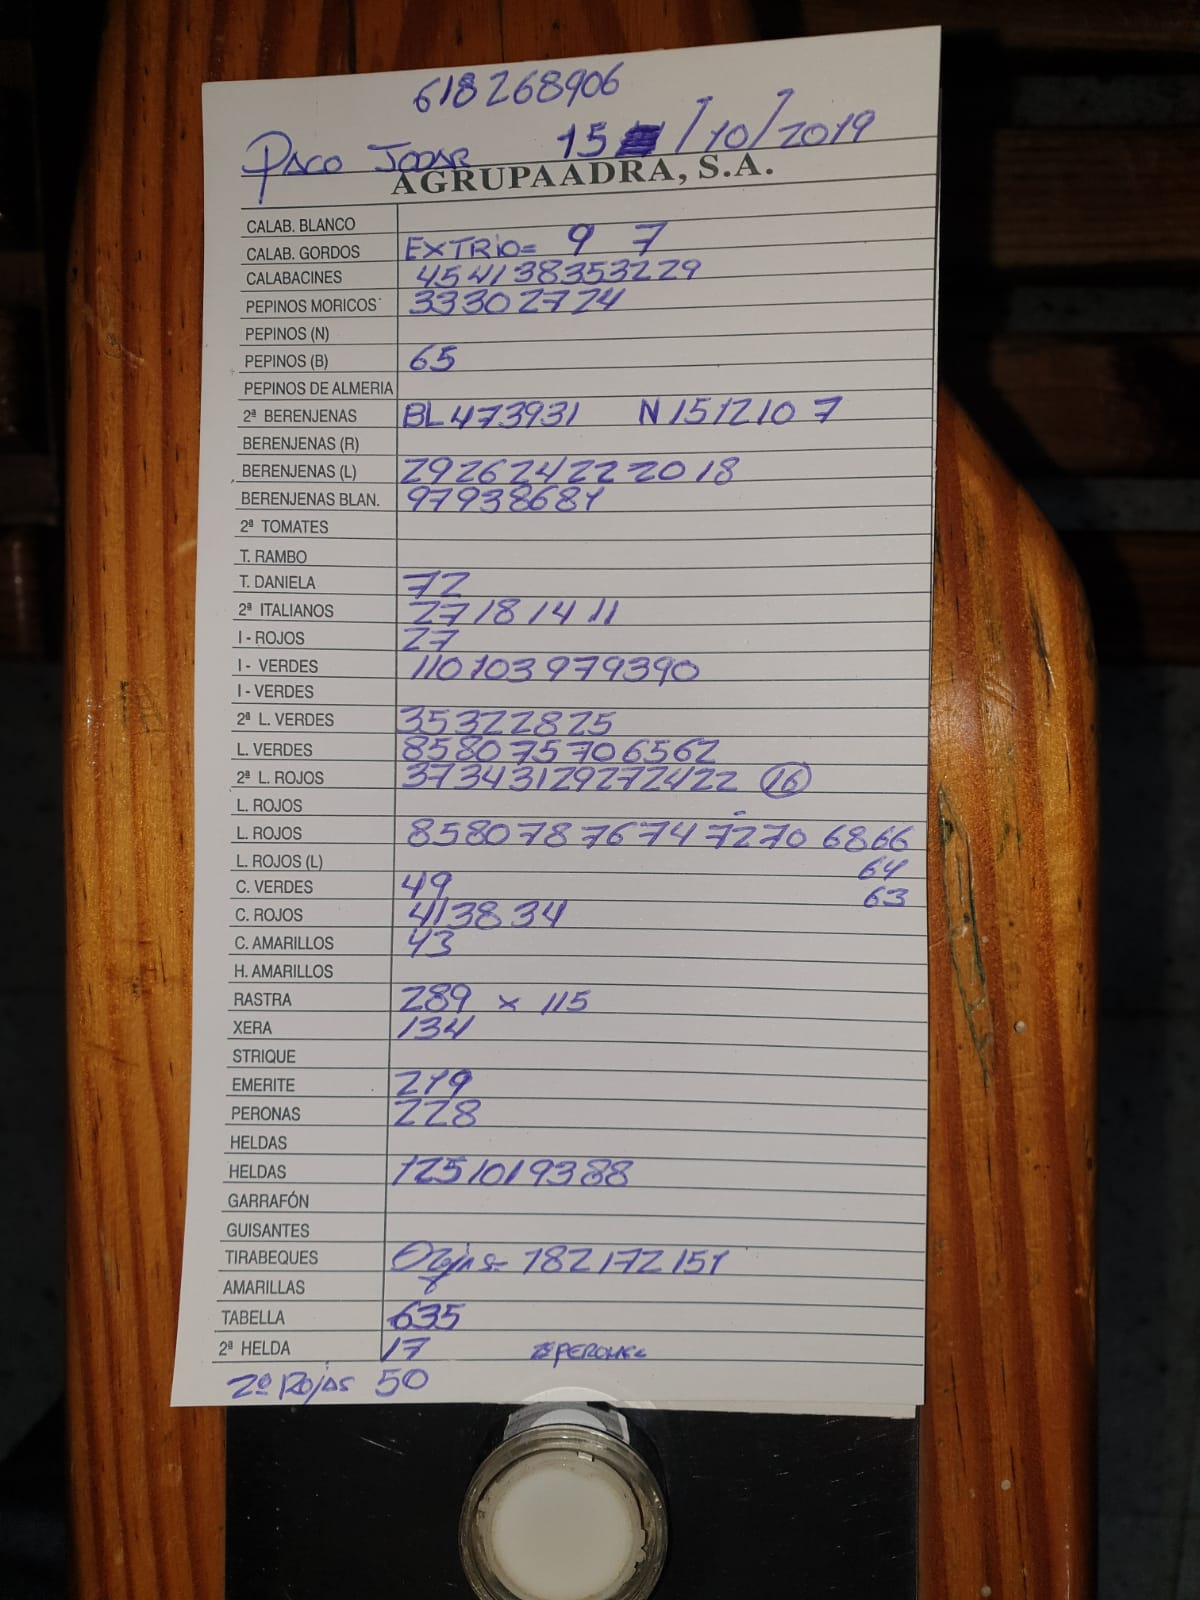 618268906
PACO JODAR 15 /10/2019
AGRUPAADRA, S.A.
CALAB. BLANCO
CALAB. GORDOS EXTRIO= 9 7
CALABACINES 454138353229
PEPINOS MORICOS 33302724
PEPINOS (N)
PEPINOS (B) 65
PEPINOS DE ALMERIA
2ª BERENJENAS BL473931 N 1512107
BERENJENAS (R)
BERENJENAS (L) 292624222018
BERENJENAS BLAN. 97938681
2ª TOMATES
T. RAMBO
T. DANIELA 72
2ª ITALIANOS 27181411
I - ROJOS 27
I - VERDES 110103979390
I - VERDES
2ª L. VERDES 35322825
L. VERDES 858075706562
2ª L. ROJOS 37343129272422 16
L. ROJOS
L. ROJOS 858078767472706866
L. ROJOS (L) 64
C. VERDES 49 63
C. ROJOS 413834
C. AMARILLOS 43
H. AMARILLOS
RASTRA 289 x 115
XERA 134
STRIQUE
EMERITE 219
PERONAS 228
HELDAS
HELDAS 1251019388
GARRAFÓN
GUISANTES
TIRABEQUES 182172151
AMARILLAS
TABELLA 635
2ª HELDA 17
2ª Rojas 50